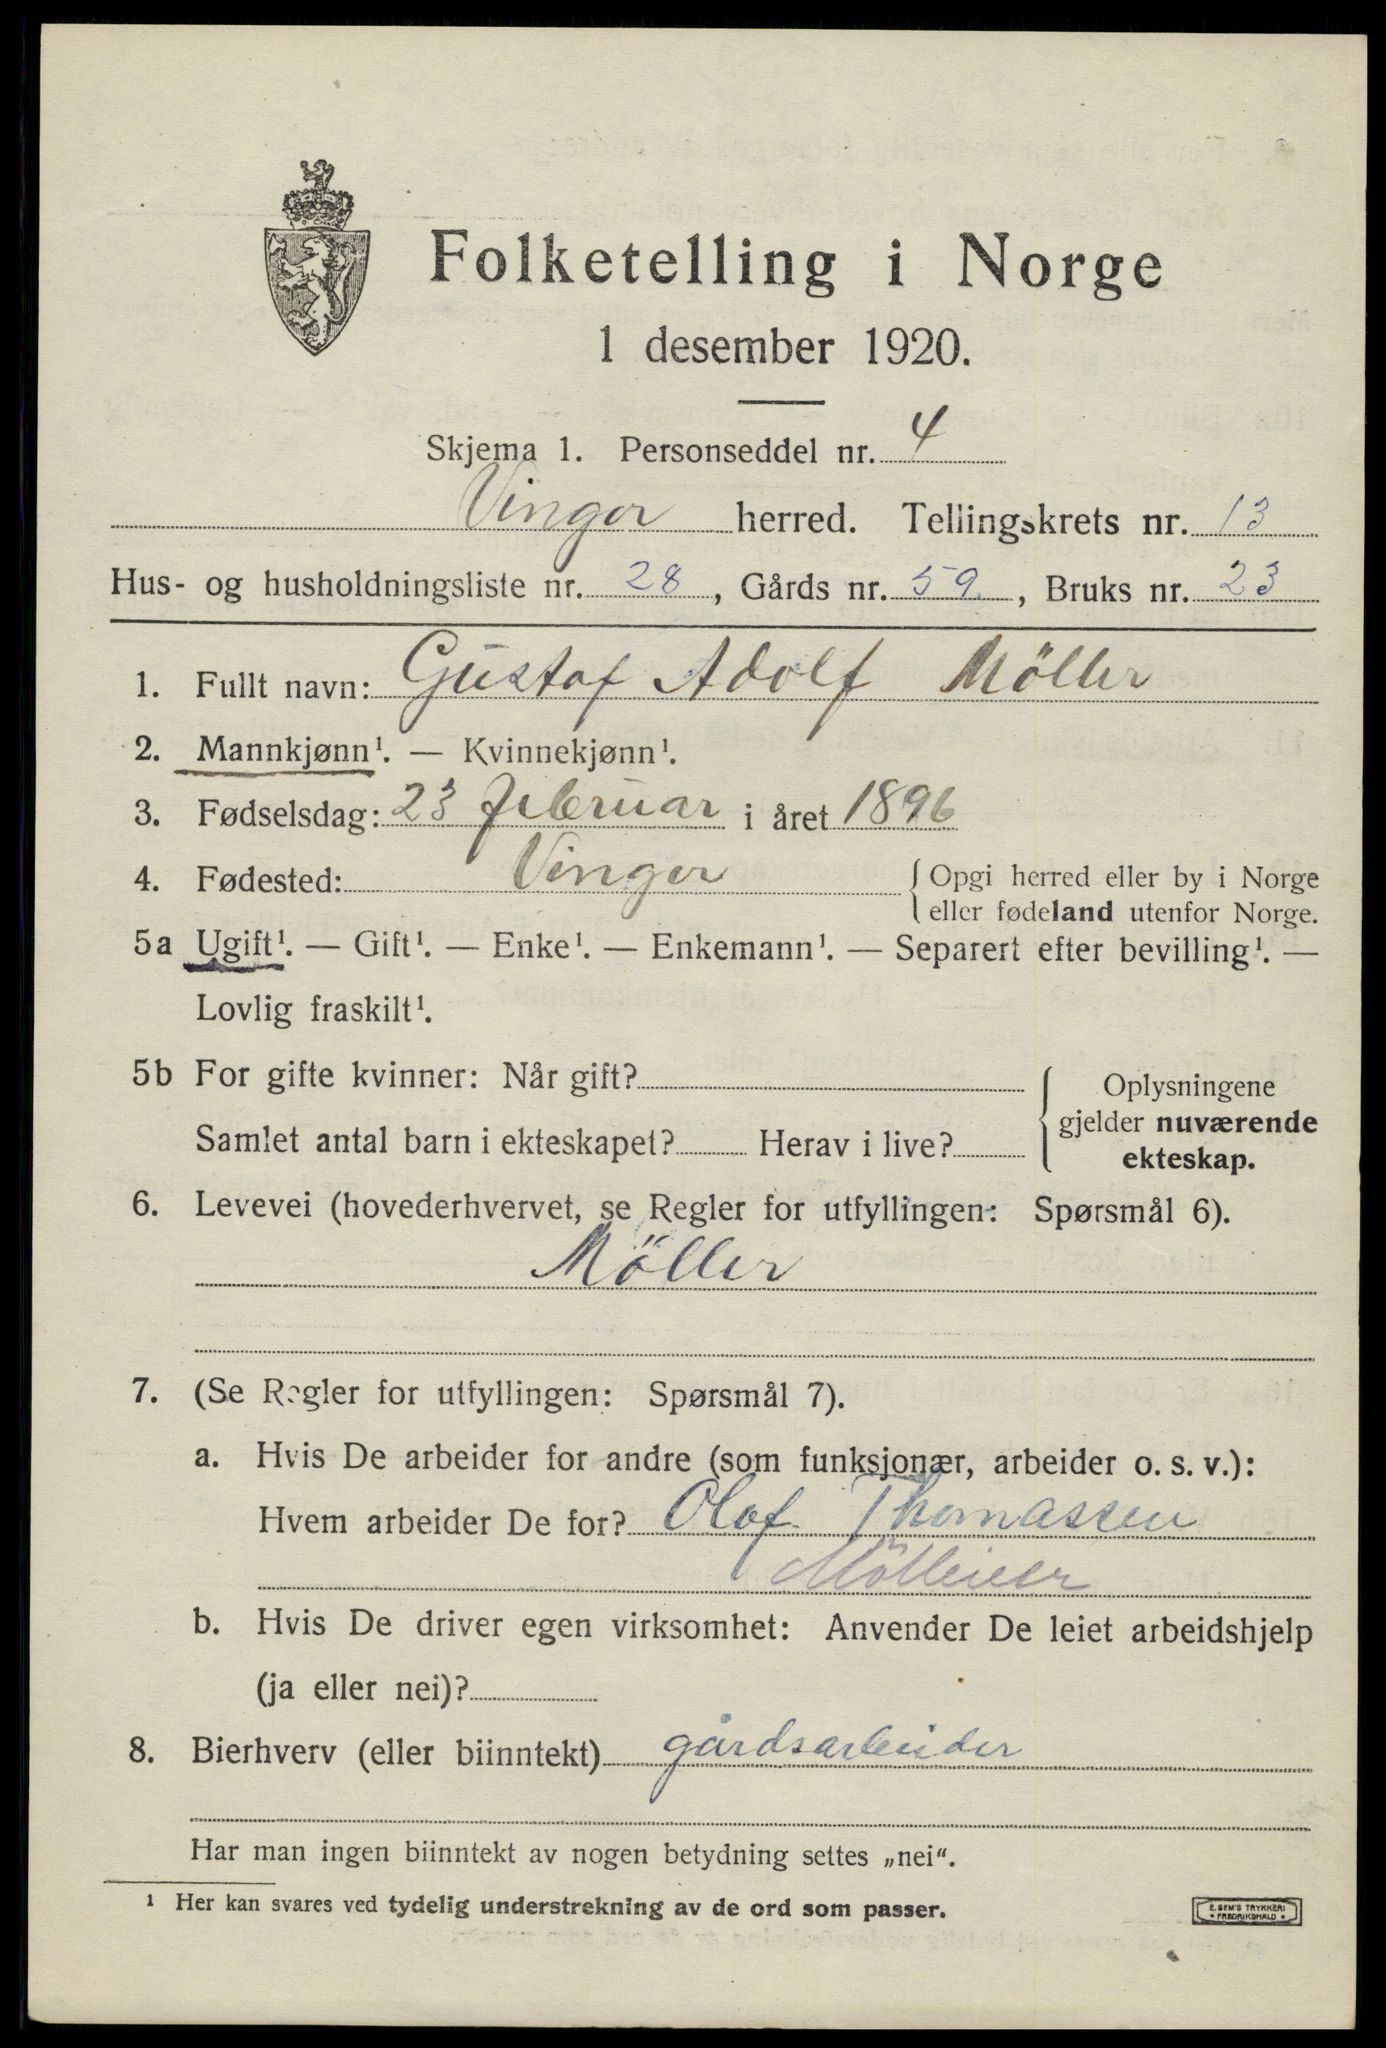 Folketelling i Norge
1 desember 1920.
Skjema 1. Personseddel nr. 4
Vinger herred. Tellingskrets nr. 13
Hus- og husholdningsliste nr. 28, Gårds nr. 59., Bruks nr. 23
1. Fullt navn: Gustaf Adolf Möller
2. Mannkjønn¹. — Kvinnekjønn¹.
3. Fødselsdag: 23 februar i året 1896
4. Fødested: Vinger { Opgi herred eller by i Norge
eller fødeland utenfor Norge.
5a Ugift¹. — Gift¹. — Enke¹. — Enkemann¹. — Separert efter bevilling¹. —
Lovlig fraskilt¹.
5b For gifte kvinner: Når gift?
Samlet antal barn i ekteskapet? Herav i live?
{ Oplysningene
gjelder nuværende
ekteskap.
6. Levevei (hovederhvervet, se Regler for utfyllingen: Spørsmål 6).
Möller
7. (Se Regler for utfyllingen: Spørsmål 7).
a. Hvis De arbeider for andre (som funksjonær, arbeider o. s. v.):
Hvem arbeider De for? Olof Thomassen
Mölleier
b. Hvis De driver egen virksomhet: Anvender De leiet arbeidshjelp
(ja eller nei)?
8. Bierhverv (eller biinntekt) gårdsarbeider
Har man ingen biinntekt av nogen betydning settes „nei“.
¹ Her kan svares ved tydelig understrekning av de ord som passer.
E. SEM'S TRYKKERI
• FREDRIKSHALD •